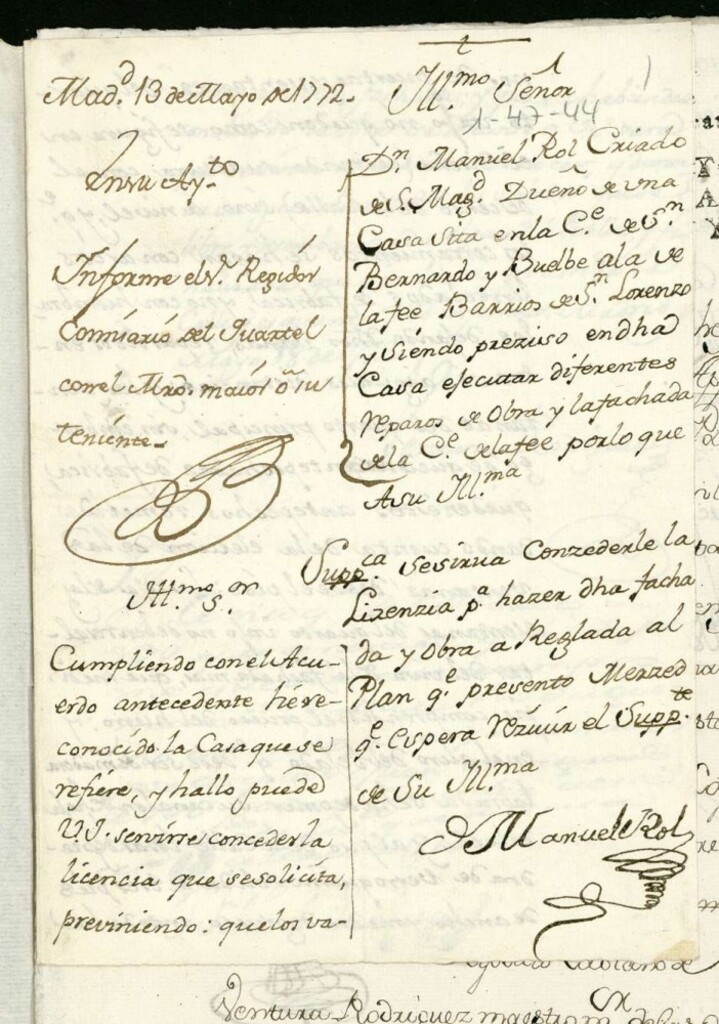 Mad.d 13 de Mayo de 1772.
En su Ay.to
Informe el S.r Regidor
Comisario del Quartel
con el Mro. maior ô su
teniente.
Ill.mo S.or
Cumpliendo con el Acu-
erdo antecedente hé re-
conocido la Casa que se
refiere, y hallo puede
V.I. servirse concederla
licencia que se solicita,
previniendo: que los va-
t
Ill.mo Señor
1-47-44
1
D.n Manuel Rol Criado
de S. Mag.d Dueño de una
Casa sita en la C.e de S.n
Bernardo y Buelbe a la de
la fee Barrios de S.n Lorenzo
y siendo preziso en dha
Casa ejecutar diferentes
reparos de Obra y la fachada
de la C.e de la fee por lo que
A su Ill.ma
Supp.ca se sirva Conzederle la
Lizenzia p.a hazer dha facha
da y Obra a Reglada al
Plan q.e presento Merzed
q.e espera rezivir el Supp.te
de Su Ill.ma
Manuel Rol
Ventura Rodriguez